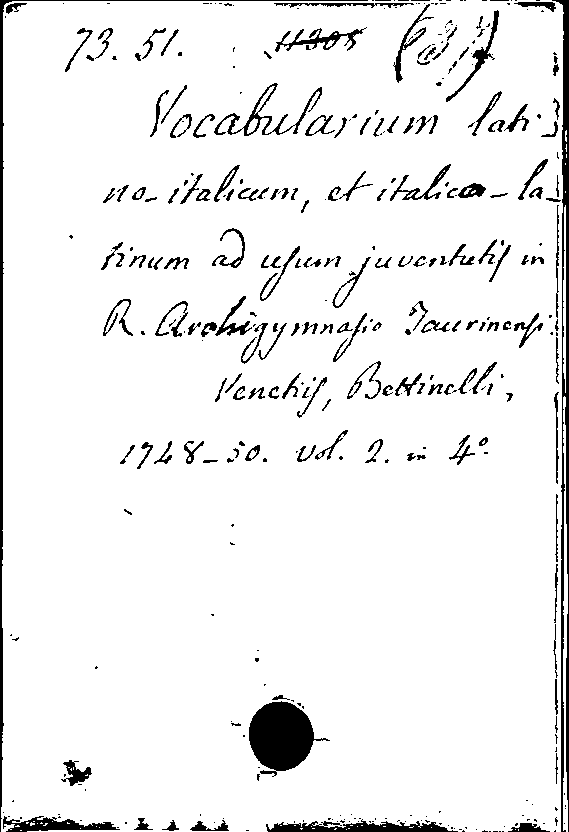 73. 51. 11308
Vocabularium lati-
no-italicum, et italico-la-
tinum ad usum juventutis in
R. Archigymnasio Taurinensi.
Venetiis, Bettinelli,
1748-50. vol. 2. in 4º.